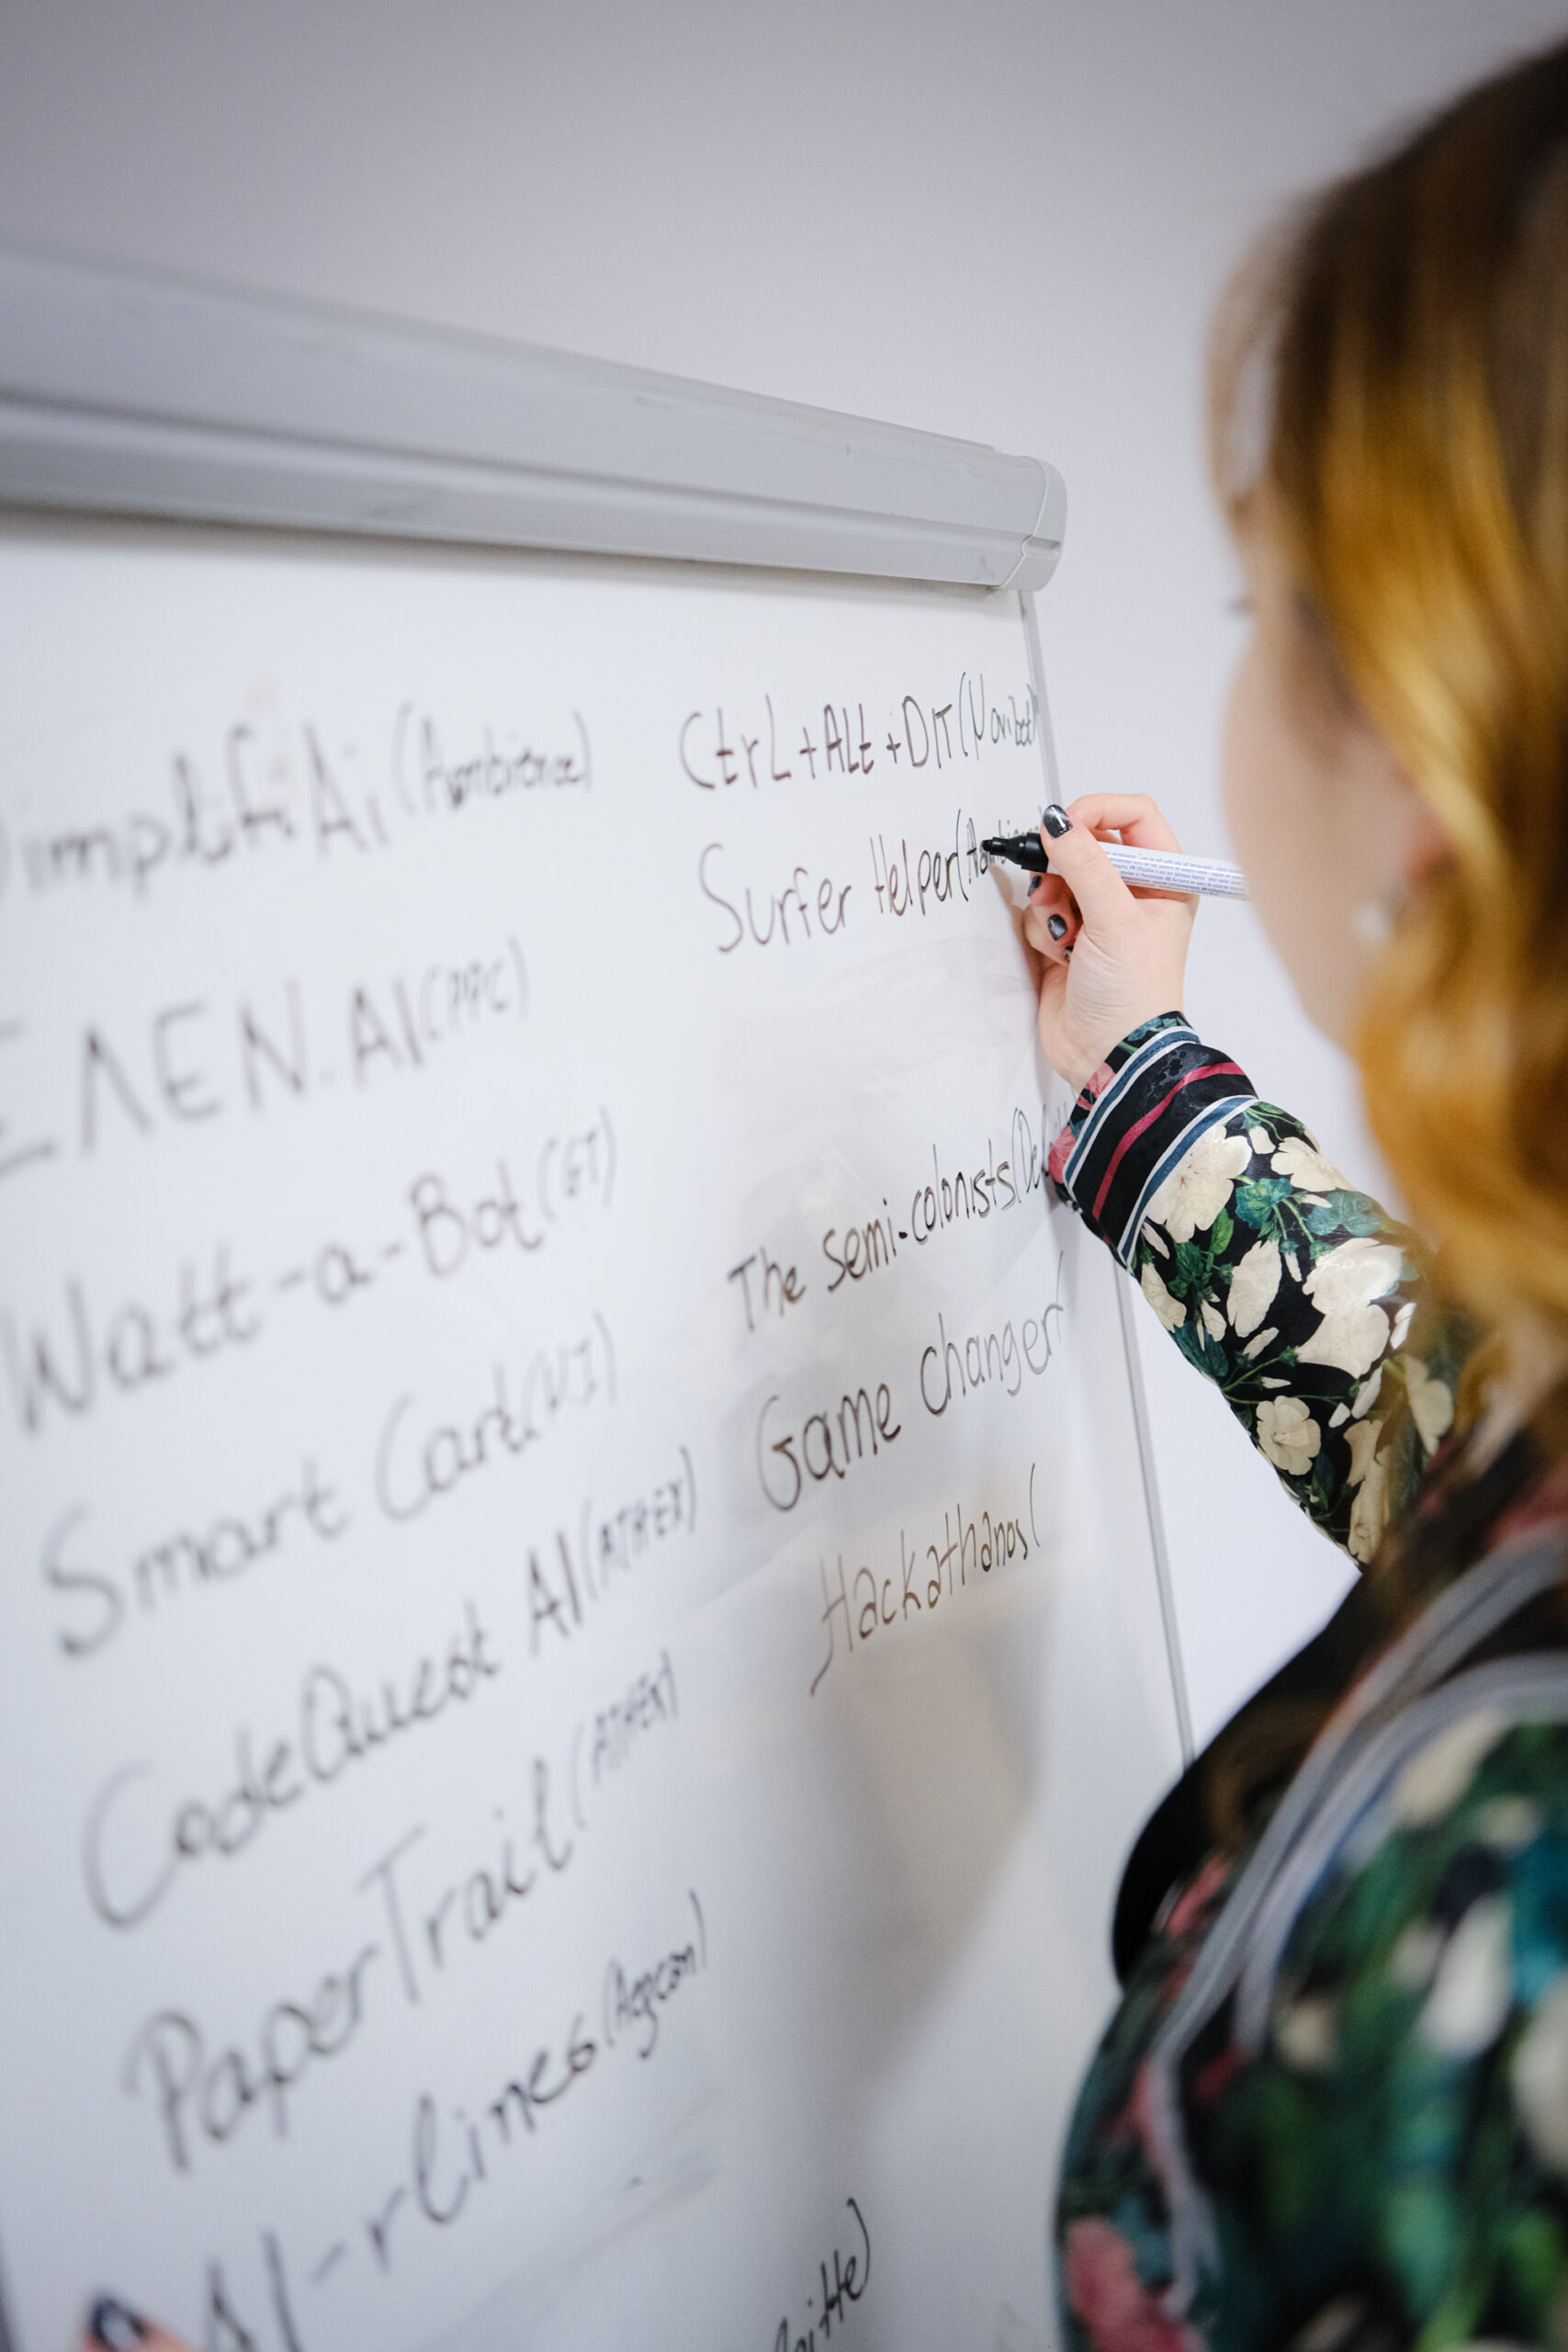 SimplifiAi (Ambience)
ΕΛΕΝ.AI (PPC)
Watt-a-Bot (GT)
Smart Cart (VI)
CodeQuest AI (ATHEX)
PaperTrail (ATHEX)
AI-rlines (Aegean)
Ctrl+ALt+DIT
Surfer Helper (
The semi-colonists (De
Game changer (
Hackathanos (